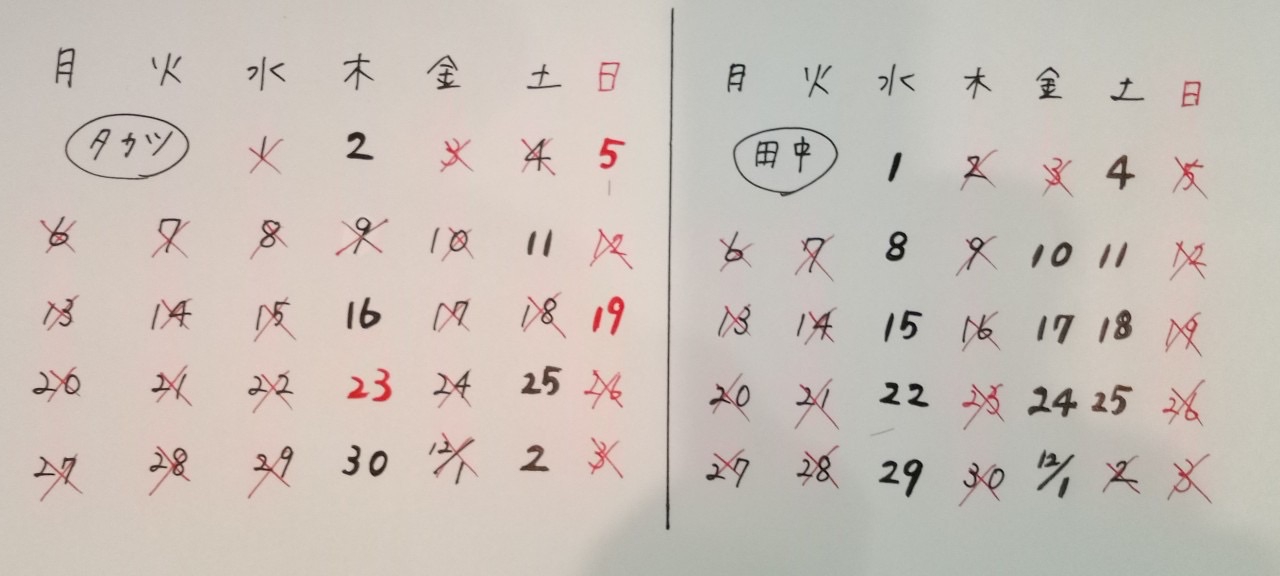 月 火 水 木 金 土 日
タカツ 1 2 3 4 5
6 7 8 9 10 11 12
13 14 15 16 17 18 19
20 21 22 23 24 25 26
27 28 29 30 12/1 2 3
月 火 水 木 金 土 日
田中 1 2 3 4 5
6 7 8 9 10 11 12
13 14 15 16 17 18 19
20 21 22 23 24 25 26
27 28 29 30 12/1 2 3